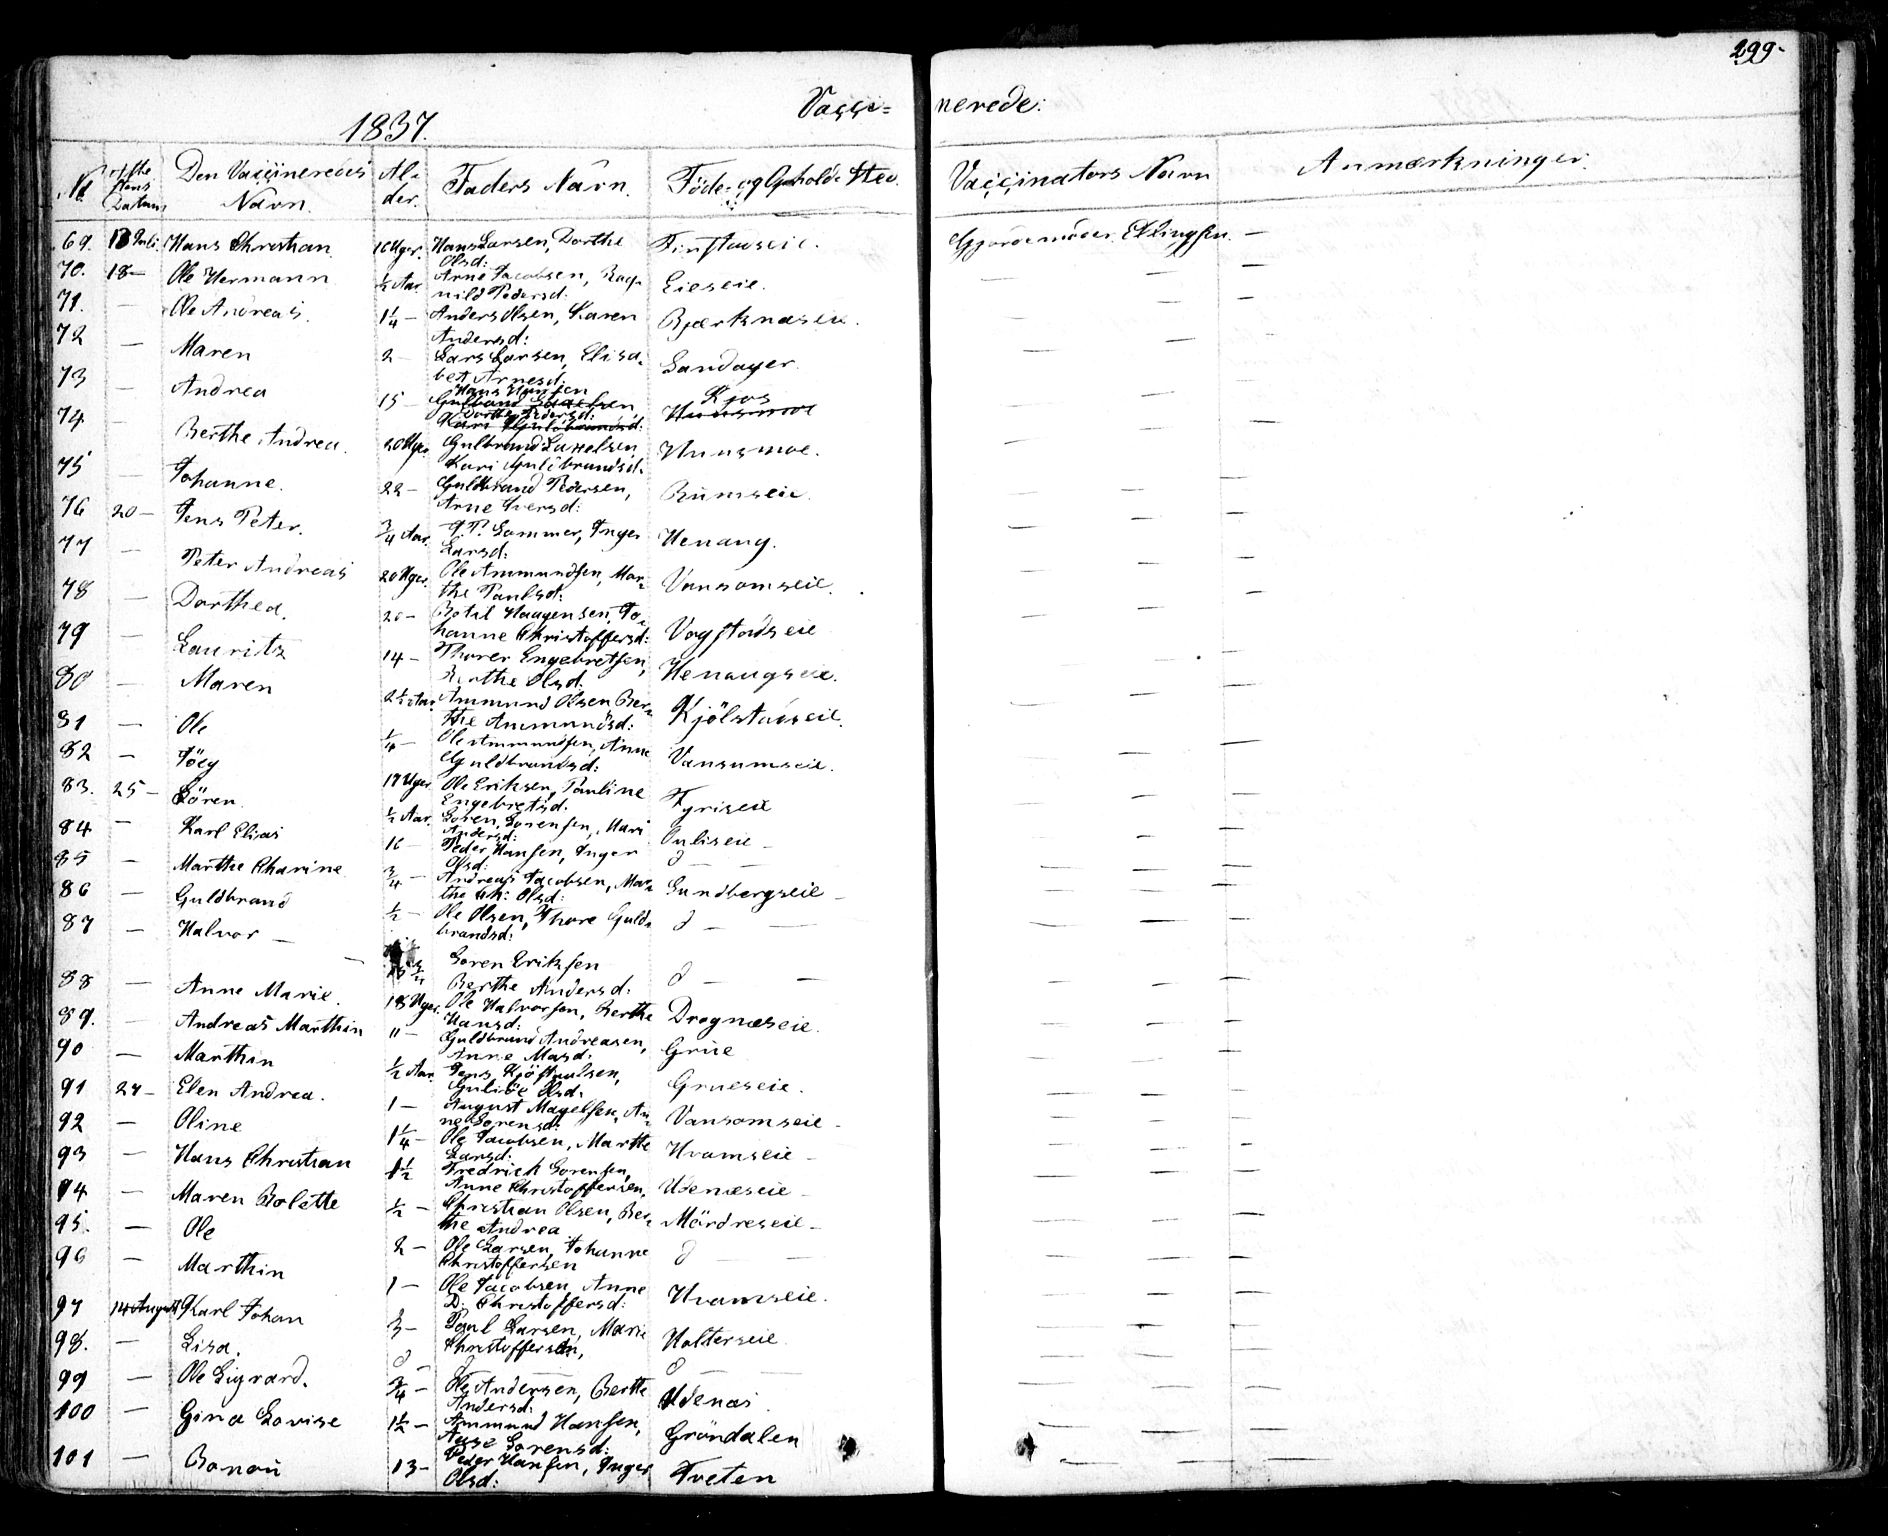 299-
Vacci= nerede:
1837.
No Den Vaccineredes Navn. Al- der. Faders Navn. Föde- og Opholds Sted. Vaccinators Navn Anmærkninger.
69. 13 Juli. Hans Christian 16 Uger. Hans Larsen, Dorthe Olsd: Gjordemoder Ellingsen. —
70. 18— Ole Hermann ½ Aar. Arne Jacobsen, Rag- nild Pedersd: Eieseie. — — —
71. — Ole Andreas. 1¼ — Anders Olsen, Karen Andersd: Bjærknæseie. — — —
72 — Maren 2 — Lars Larsen, Elisa- bet Arnesd. Sandager. — — —
73 — Andrea 15 — Hans Hansen Dorthe Pedersd: Kjos — — —
74. — Berthe Andrea. 20 Uger. Gulbrand Kari Gulbrandsd: Huusmoe. — — —
75 — Johanne. 22 — Guldbrand Pedersen, Arne Iversd: — — —
76 20 — Jens Peter. ¾ Aar. J. P. Sommer, Inger Larsd: Henaug. — — —
77 — Peter Andreas 20 Uger. Ole Ammundsen, Mar- the Paulsd: Vansomseie. — — —
78 — Dorthea. 20 — Botil Haagensen, Jo- hanne Christoffersd: — — —
79 — Lauritz 14 — Thorer Engebretsen, Berthe Olsd. Henaugseie. — — —
80 — Maren 2½ Aar. Ammund Olsen Ber- the Ammundsd: Kjölstadseie. — — —
81 — Ole ¼ — Ole Ammundsen, Anne Guldbrandsd: Vansumseie. — — —
82 — 17 Uger Ole Eriksen, Pauline Engebretsd. Fyriseie — — —
83. 25 — Sören. ½ Aar. Soren Sorensen, Mari Andersd: Ouliseie — — — —
84 — Karl Elias 16 — Peder Hansen, Inger Olsd: d — — — — —
85 — Marthe Charine ¾ — Andreas Jacobsen, Mar- the Ch: Olsd: Sundbergseie — — — —
86 — Guldbrand ½ — Ole Olsen, Thore Guld- brandsd: d — — — — —
87 — Halvor — Soren Eriksen Berthe Andersd: d — — — — —
88 — Anne Marie. 18 Uger. Ole Halvorsen, Berthe Hansd: Drognæseie. — — —
89. — Andreas Marthin 11 — Guldbrand Andreasen, Anne Masd: Grue — — —
90 — Marthin ½ Aar. Jens Olsd. Grueseie. — — —
91 27 — Elen Andrea. 1 — August Magelsen, An- ne Sorensd: Vansomseie — — — —
92 — Oline 1¼ — Ole Jacobsen, Marthe Larsd: Hvamseie — — — —
93 — Hans Christian 1½ Fredrich Sorensen, Anne Christoffersen, Udenæseie — — — —
94 — Maren Bolette ½ — Christian Olsen, Ber- the Andrea Mördreseie — — — —
95. — Ole 2 — Ole Larsen, Johanne Christoffersen d — — — — —
96 — Marthin 1 — Ole Jacobsen, Anne D: Christoffersd: Hvamseie. — — —
97 14 August Karl Johan Paul Larsen, Marie Christoffersen, Holterseie — — —
98. — Lisa. d — d — d — — — —
99 — Ole Sigvard. ¾ — Ole Andersen, Berthe Andersd: Udenæs — — —
100 — Gina Lovise 1½ — Ammund Hansen, Aase Sorensd: Gröndalen — — —
101 — 13 — Peder Hansen, Inger Olsd: Tveten — — —